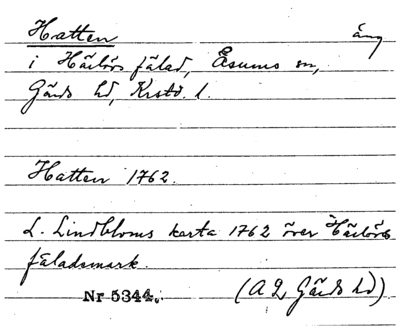 Hatten äng
i Härlövs fälad, Everöds sn,
Gärds hd, Krstd. l.
Hatten 1762.
L. Lindbloms karta 1762 över Härlövs
fäladsmark.
Nr 5344. (A Q, Gärds hd)